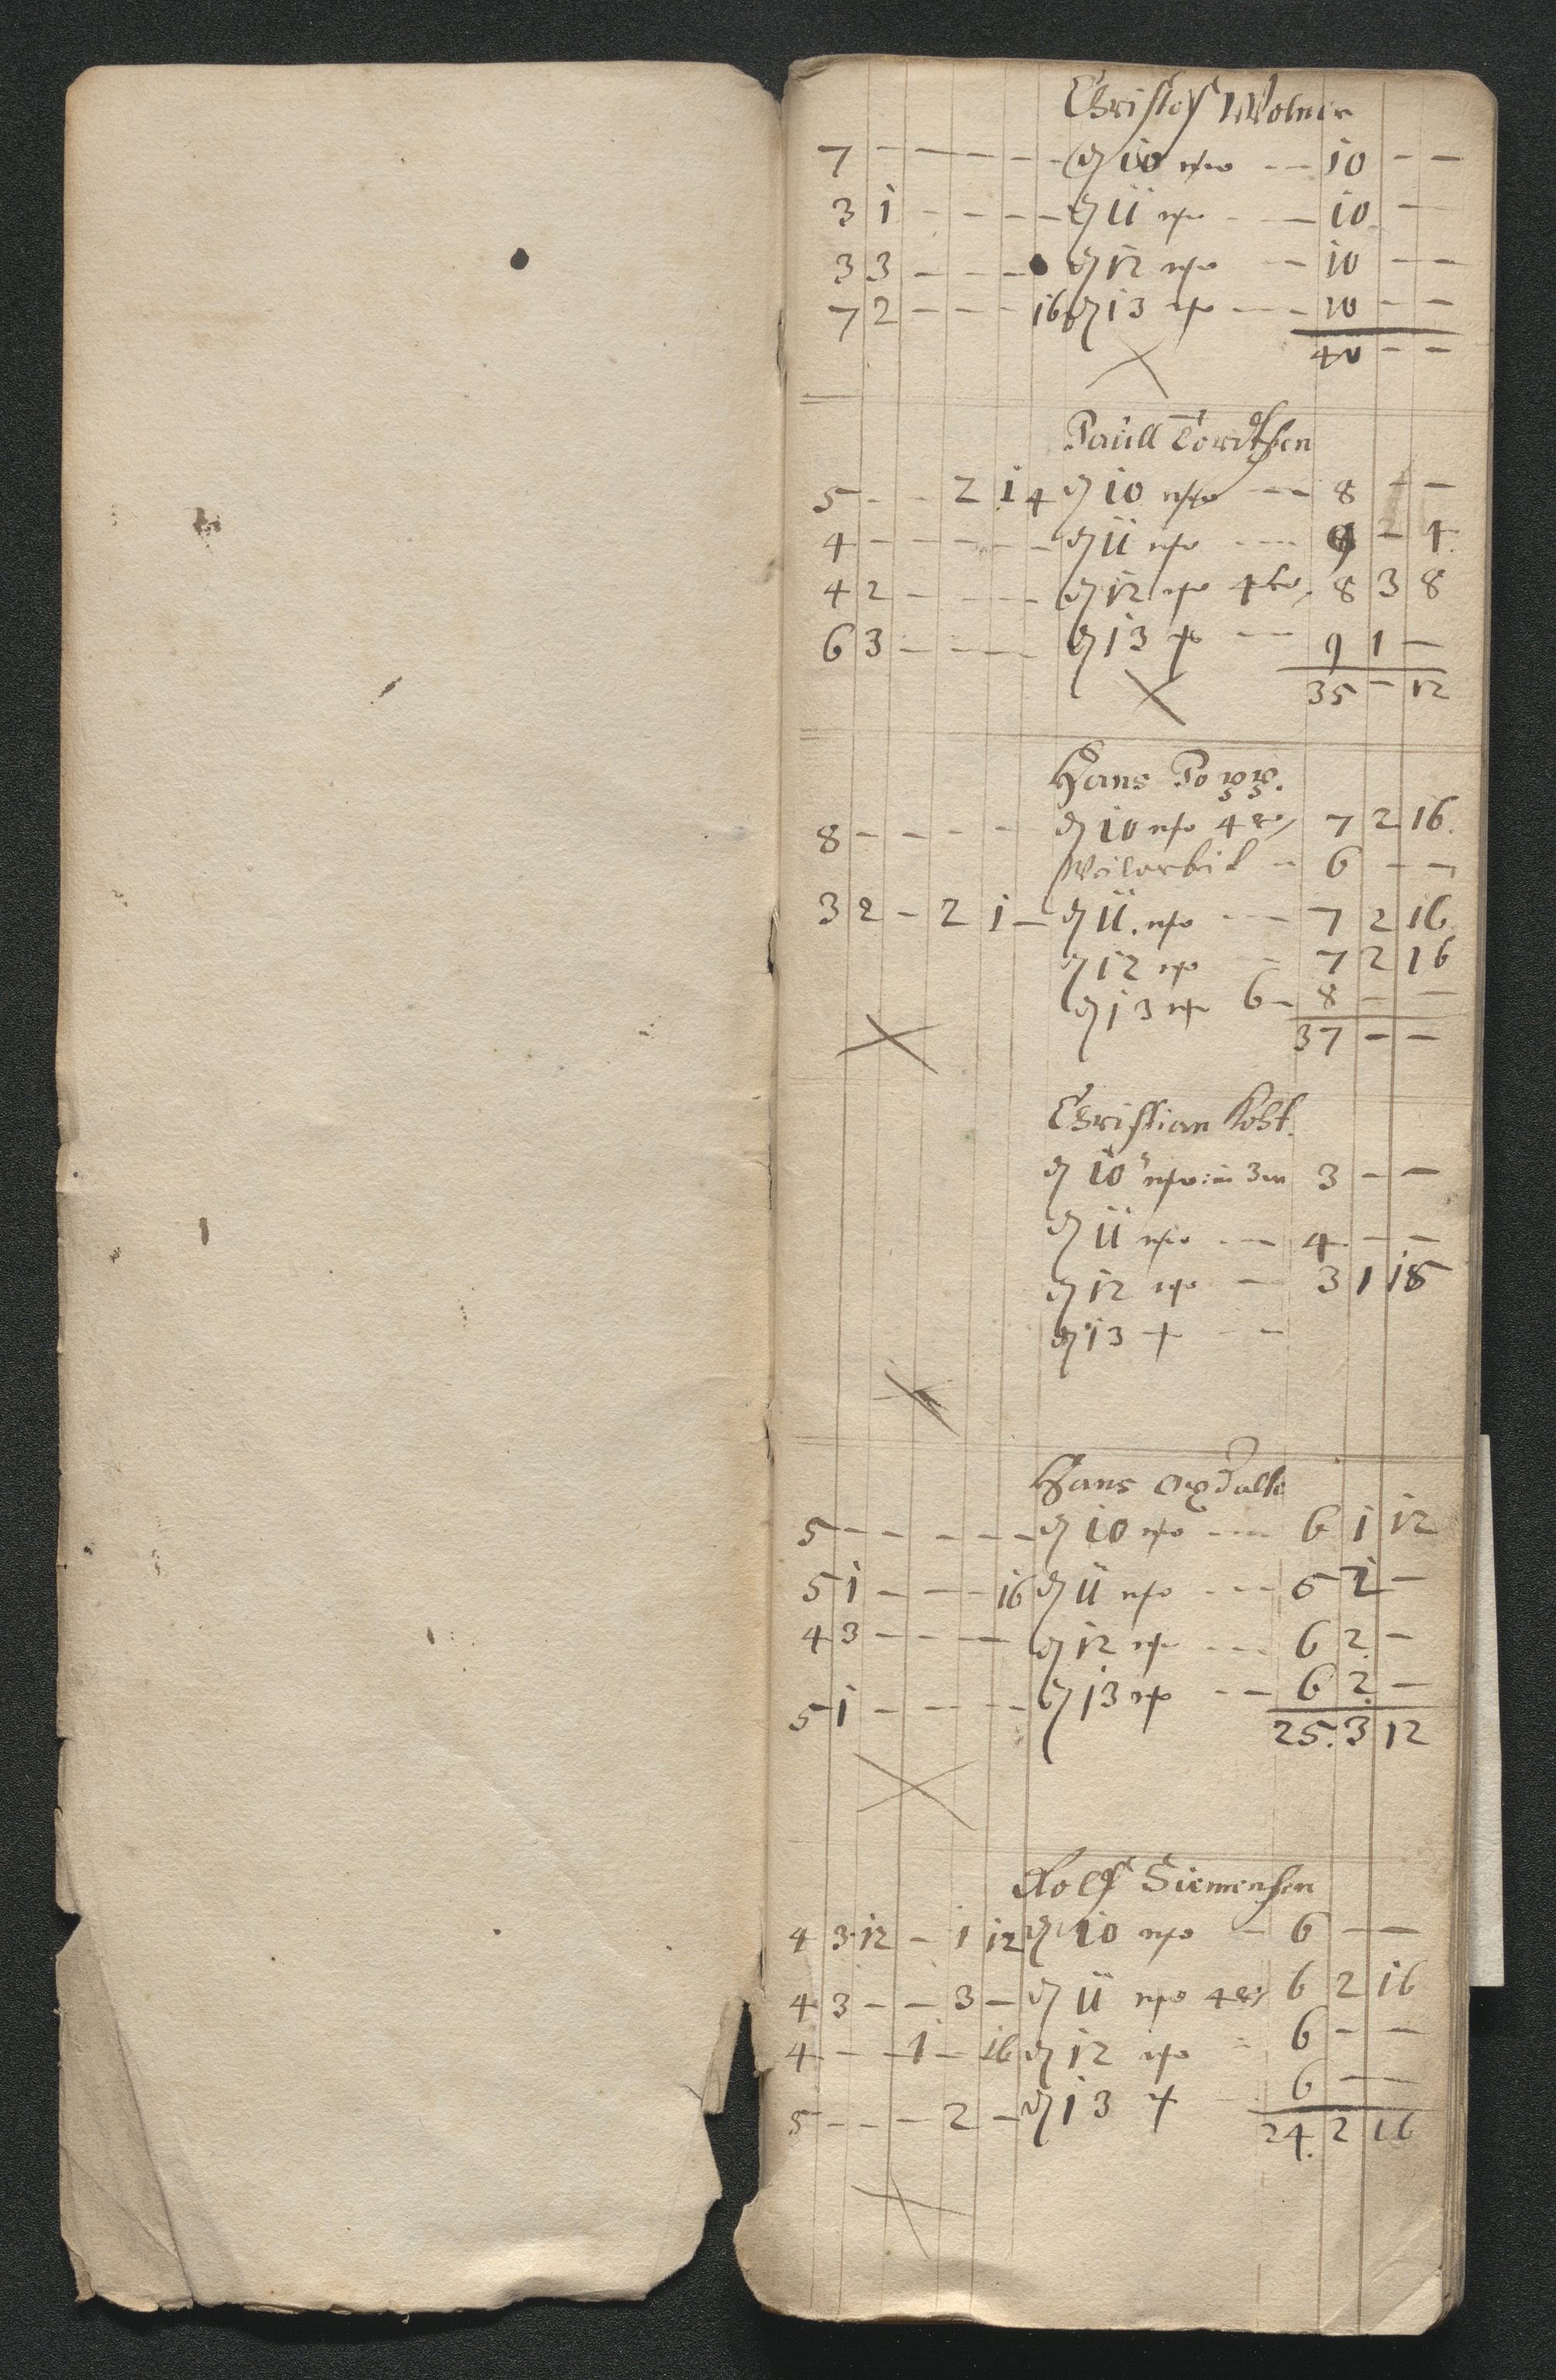 Christof Wolner
7 - - - - - d 10 mo - - 10 - -
3 1 - - - - d 11 mo - - 10 - -
3 3 - - - d 12 mo - - 10 - -
7 2 - - - 16 d 13 mo - - 10 - -
40 - -
Paull
5 - - 2 1 4 d 10 mo - - 8 - -
4 - - - - - d 11 mo - - 9 - 4
4 2 - - - - d 12 mo 8 3 8
6 3 - - - - d 13 mo - - 9 1 -
35 - 12
Hans
8 - - - - d 10 mo 7 2 16
- 6 - -
3 2 - 2 1 - d 11 mo - - 7 2 16
d 12 mo - 7 2 16
d 13 mo 6 - 8 - -
37 - -
Christian Kohl
d 10 mo 3 - -
d 11 mo - - 4 - -
d 12 mo - 3 1 18
d 13 - -
Hans
5 - - - - - d 10 mo - - 6 1 12
5 1 - - - 16 d 11 mo - - 6 2 -
4 3 - - - - d 12 mo - - 6 2 -
5 1 - - - - d 13 mo - - 6 2 -
25 3 12
Rolf Siemensen
4 3 12 - 1 12 d 10 mo - 6 - -
4 3 - - 3 - d 11 mo 6 2 16
4 - - 1 - 16 d 12 mo - 6 - -
5 - - - 2 - d 13 - 6 - -
24 2 16